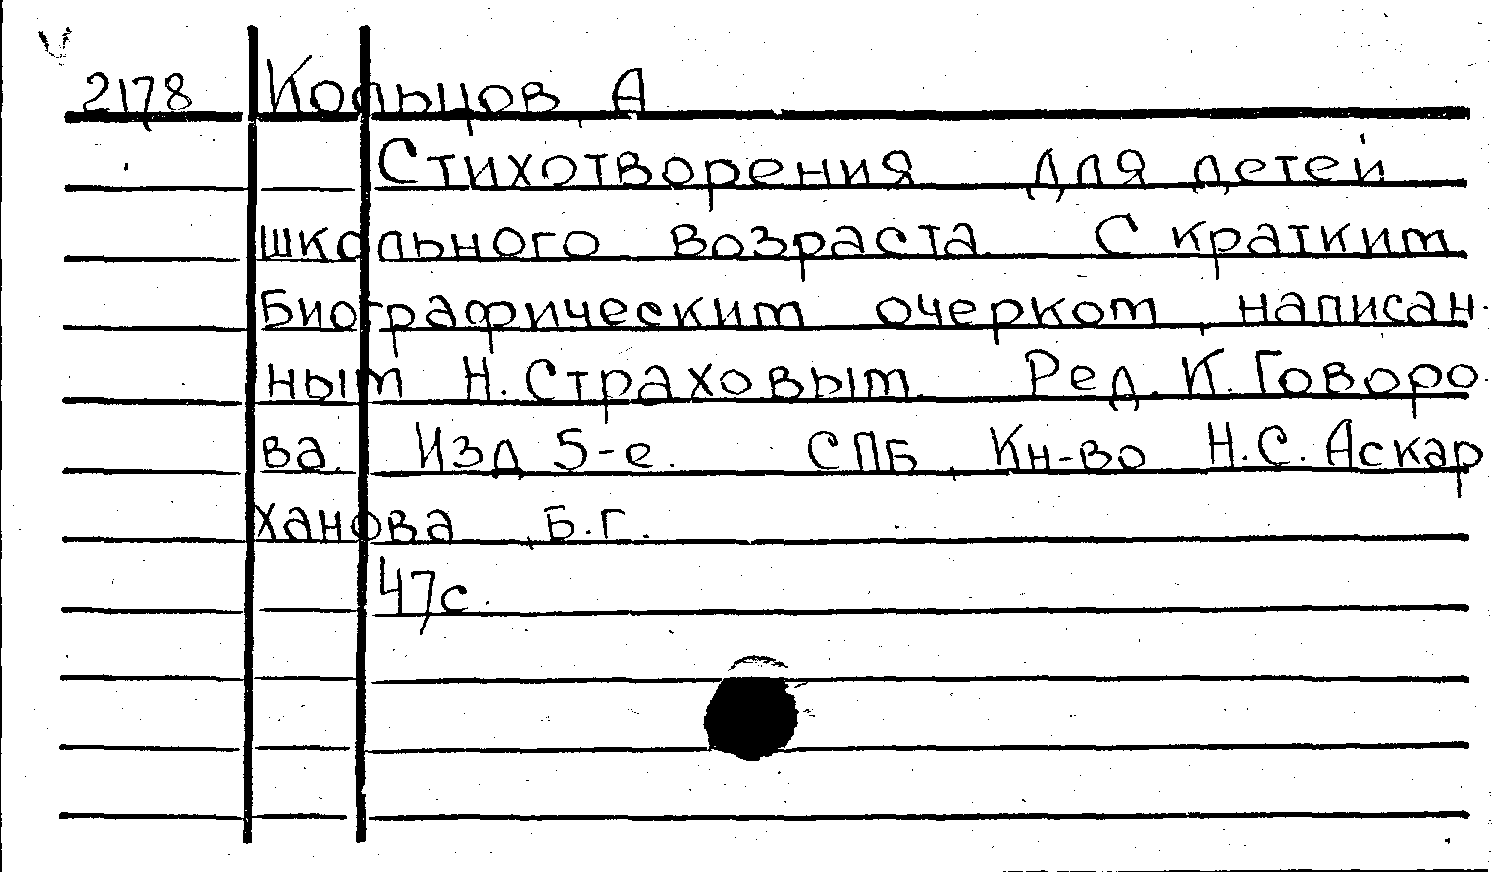 2178 Кольцов А
Стихотворения для детей
школьного возраста. С кратким
биографическим очерком, написан-
ным Н. Страховым. Ред. К. Говоро-
ва. Изд 5-е. СПБ, Кн-во Н.С. Аскар
ханова, Б.г.
47с.